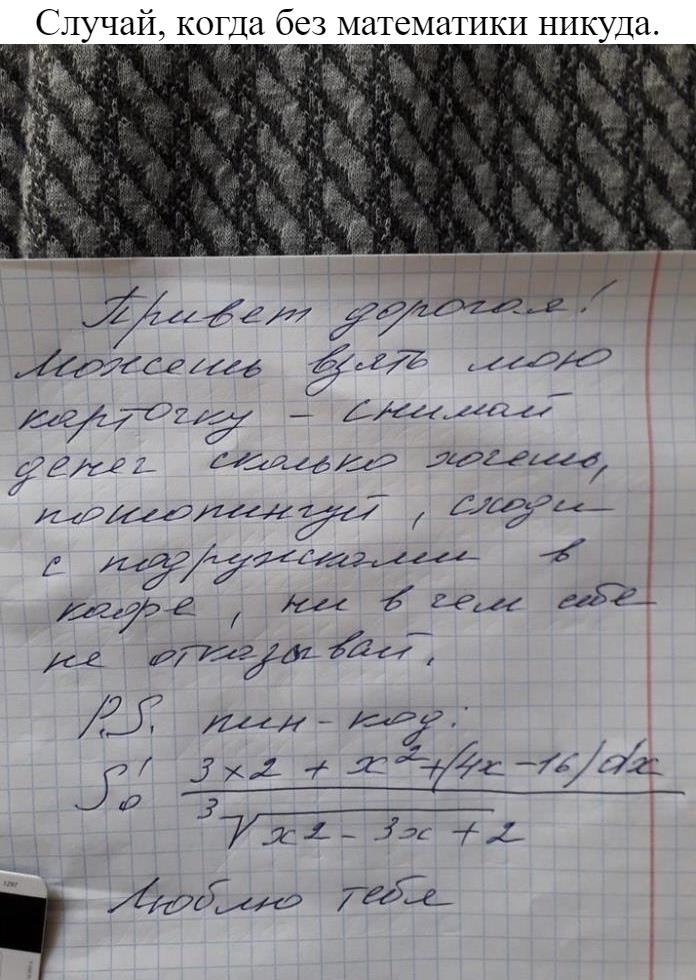 Случай, когда без математики никуда.
Привет дорогая!
Можешь взять мою
карточку – снимай
денег сколько хочешь,
пошопингуй, сходи
с подружками в
кафе, ни в чем себе
не отказывай.
P.S. пин-код:
∫₀¹ (3x2 + x² + (4x - 16) dx) / (³√(x2 - 3x + 2))
Люблю тебя
1297